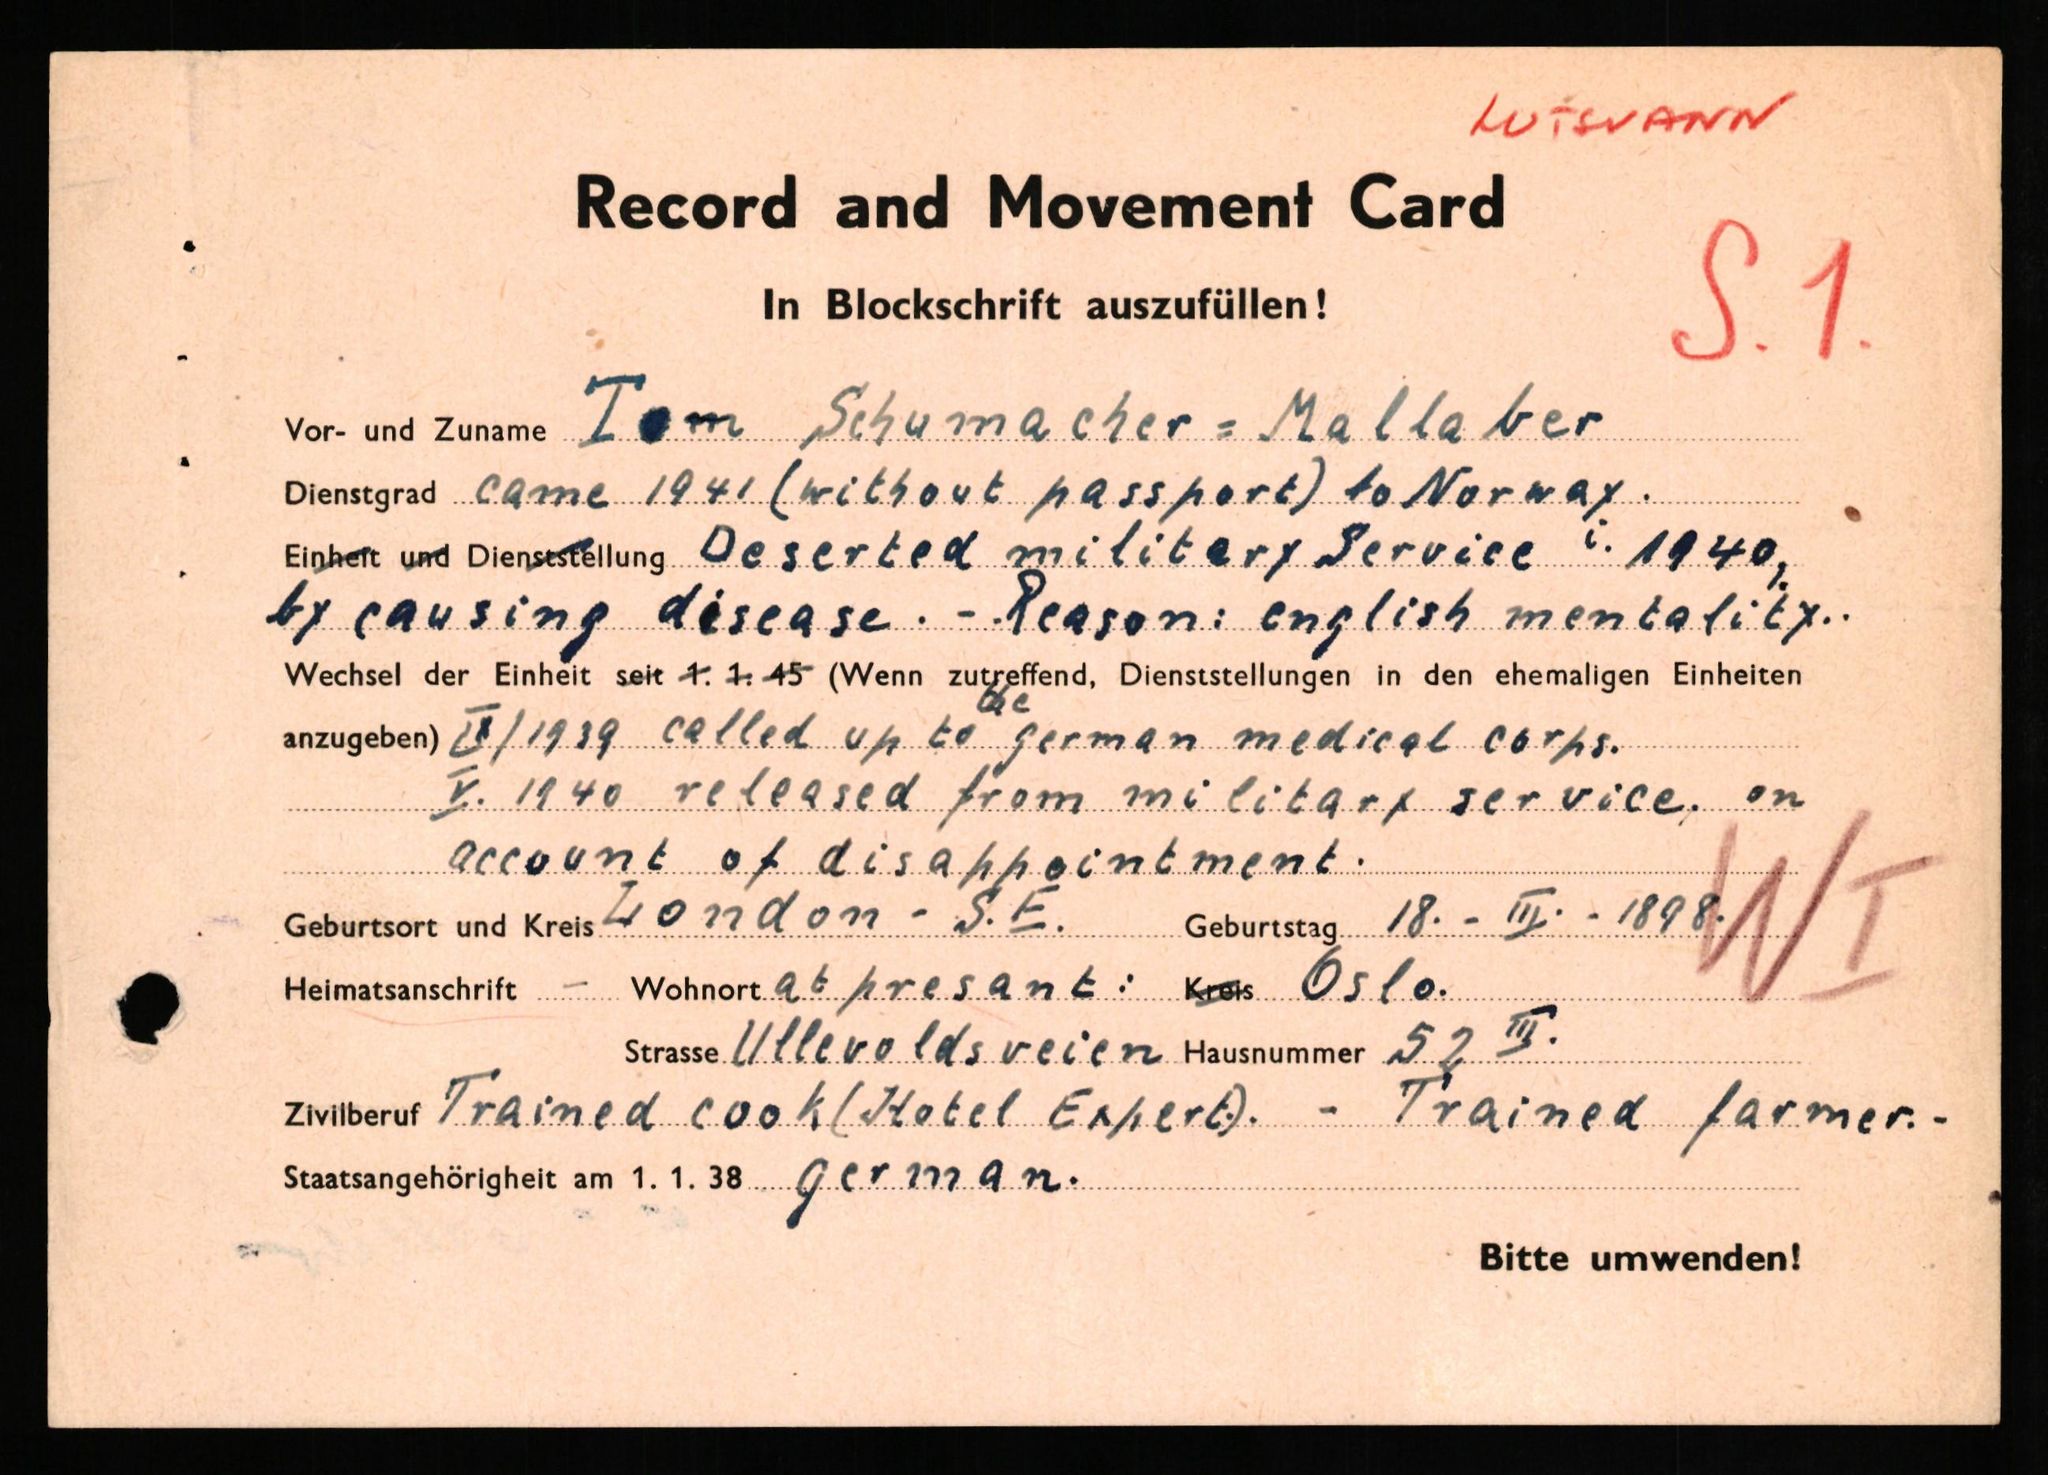 LUTSVANN
Record and Movement Card
S. 1.
In Blockschrift auszufüllen!
Vor- und Zuname Tom Schumacher = Mallaber
Dienstgrad came 1941 (without passport) to Norway.
Einheit und Dienststellung Deserted military Service i. 1940,
by causing disease. - Reason: english mentality..
Wechsel der Einheit seit 1. 1. 45 (Wenn zutreffend, Dienststellungen in den ehemaligen Einheiten
anzugeben) IX/1939 called up to the german medical corps.
V. 1940 released from military service, on
account of disappointment.
WI
Geburtsort und Kreis London - S.E. Geburtstag 18. - III. - 1898.
Heimatsanschrift - Wohnort at presant: Kreis Oslo.
Strasse Ullevoldsveien Hausnummer 52 III.
Zivilberuf Trained cook (Hotel Expert). - Trained farmer. -
Staatsangehörigheit am 1. 1. 38 german.
Bitte umwenden!